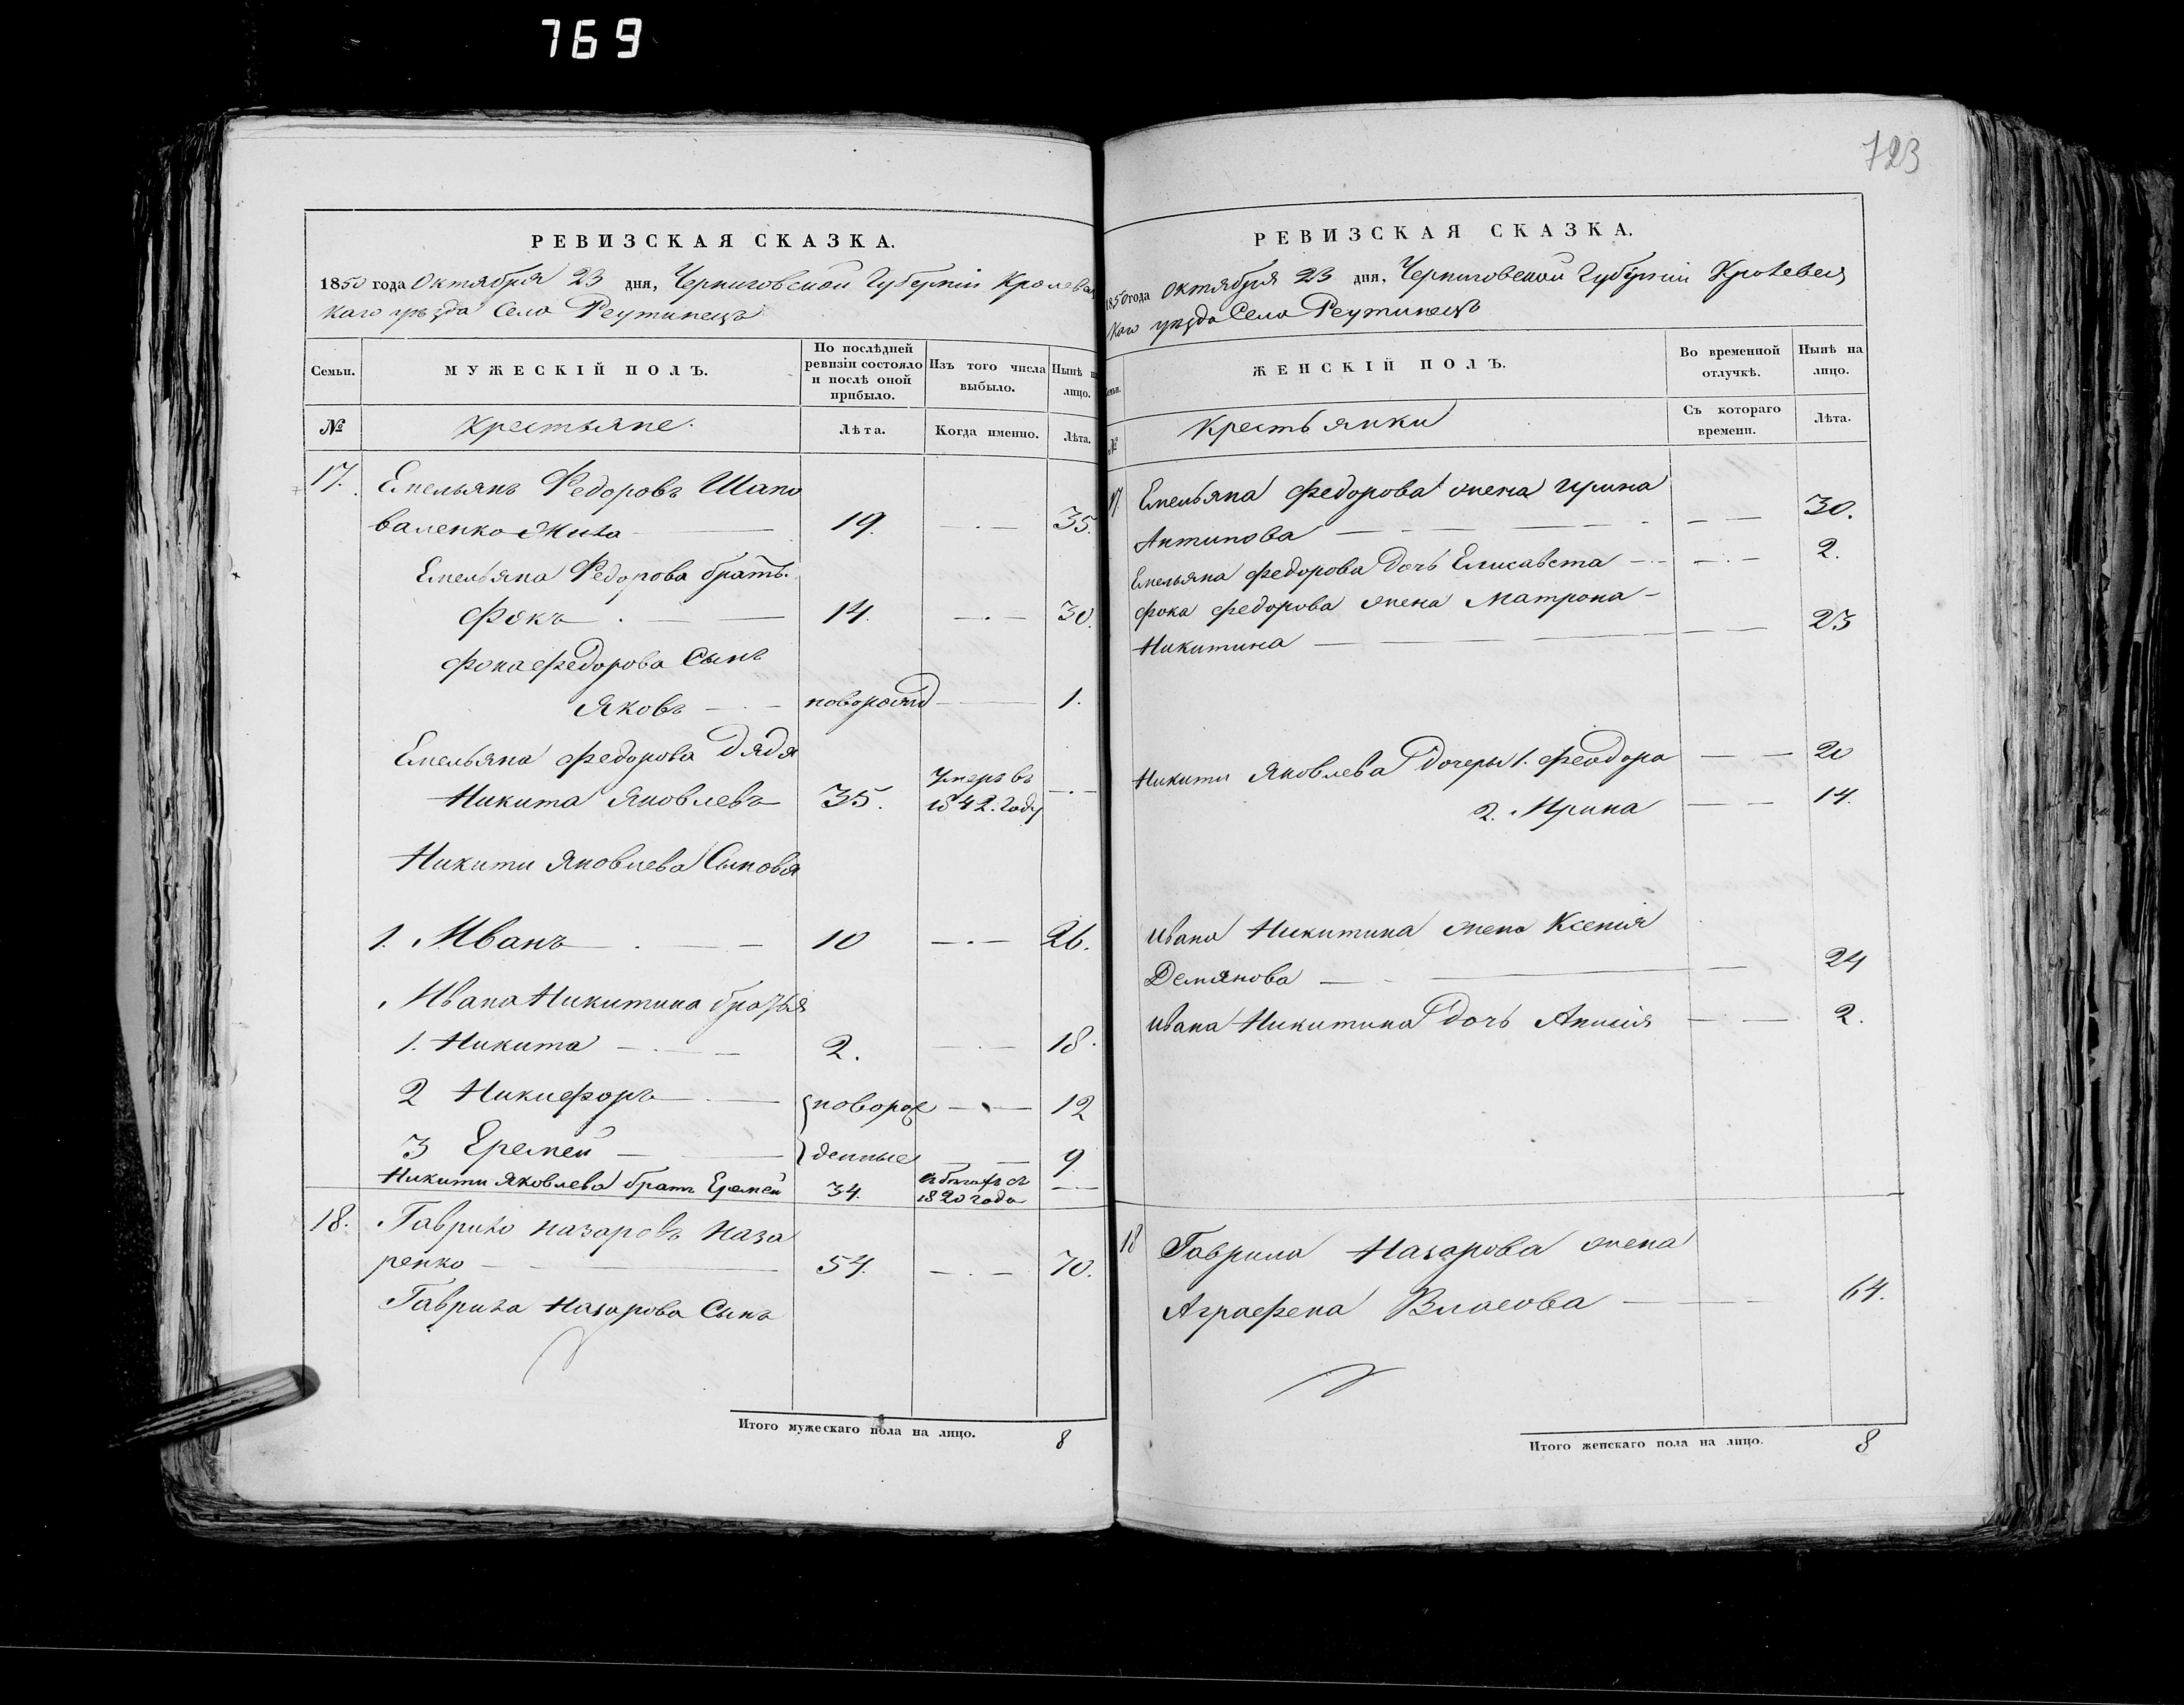 769
РЕВИЗСКАЯ СКАЗКА.
1850 года Октября 23 дня, Черниговской Губерніи Кролевец
каго уѣзда Села Реутинецъ
Семьи. МУЖЕСКІЙ ПОЛЪ. По послѣдней ревизіи состояло и послѣ оной прибыло. Изъ того числа выбыло. Нынѣ на лицо.
№ Крестьяне. Лѣта. Когда именно. Лѣта.
17. Емельянъ Федоровъ Шапо
валенко Жила 19. 35.
Емельяна Федорова братъ.
Фокъ 14. 30.
Фока Федорова Сынъ
Яковъ новорожд 1.
Емельяна Федорова дядя
Никита Яковлевъ 35. Умеръ въ 1842. году
Никити Яковлева Сыновя
1. Иванъ 10 26.
Ивана Никитина братья
1. Никита 2. 18.
2 Никифоръ новорож 12
3 Еремей денные 9
Никити Яковлева братъ Еремей 34. въ бѣгахъ съ 1820 года
18. Гаврило Назаровъ Наза
ренко 54. 70.
Гаврила Назарова Сынъ
Итого мужескаго пола на лицо. 8
723
РЕВИЗСКАЯ СКАЗКА.
1850 года Октября 23 дня, Черниговской Губерніи Кролевец
каго уѣзда Села Реутинецъ
Семьи. ЖЕНСКІЙ ПОЛЪ. Во временной отлучкѣ. Нынѣ на лицо.
№ Крестьянки Съ котораго времени. Лѣта.
17 Емельяна Федорова жена Ирина
Антипова 30.
Емельяна Федорова Дочь Елисавета 2.
Фока Федорова жена Матрона
Никитина 23
Никити Яковлева Дочери 1. Феодора 20
2. Ирина 14.
Ивана Никитина жена Ксенія
Демянова 24
Ивана Никитина Дочь Анисія 2.
18 Гаврила Назарова жена
Аграфена Власова 64.
Итого женскаго пола на лицо. 8